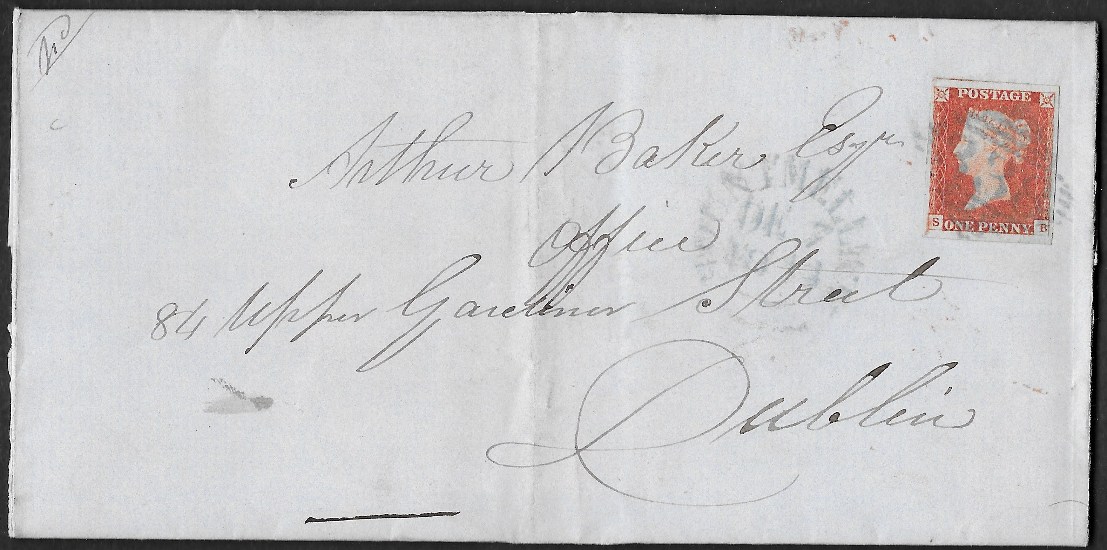 POSTAGE
S ONE PENNY B
Arthur Baker Esqre
Office
84 Upper Gardiner Street
Dublin
DE